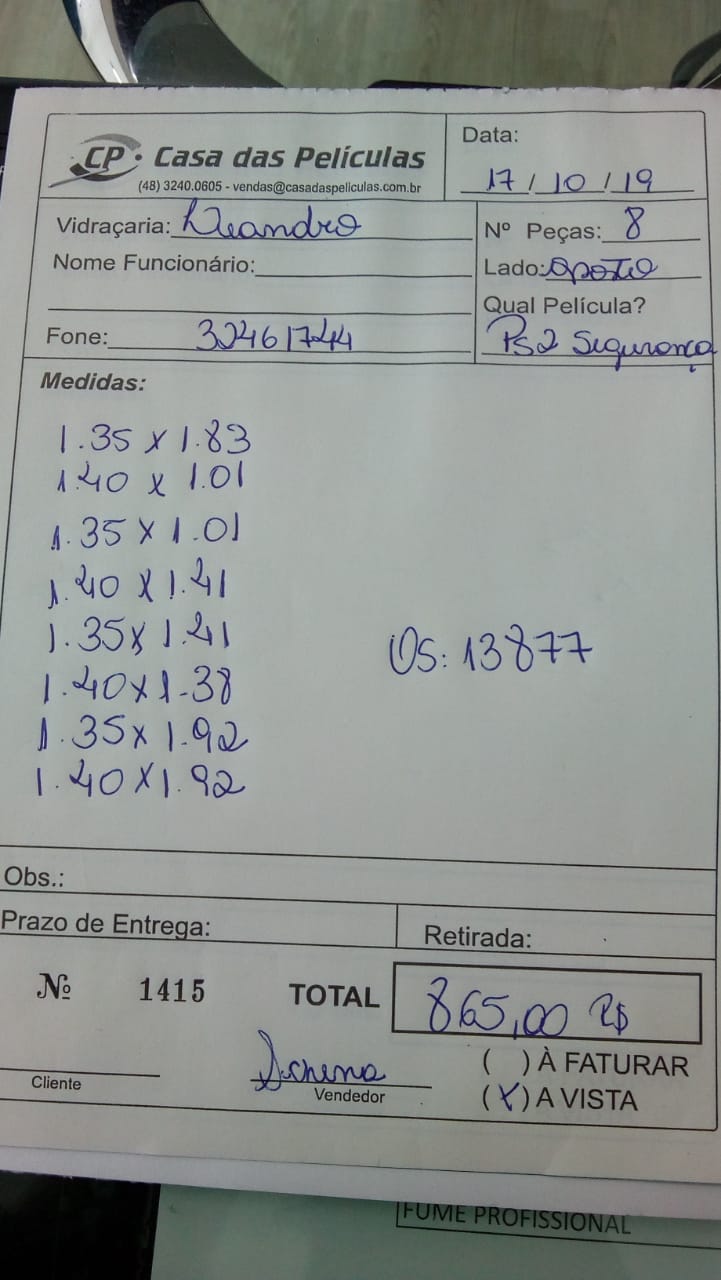 CP Casa das Películas
(48) 3240.0605 - vendas@casadaspeliculas.com.br
Data:
17 / 10 / 19
Vidraçaria: Leandro
Nome Funcionário:
Fone: 32461744
Nº Peças: 8
Lado: oposto
Qual Película?
PS2 Segurança
Medidas:
1.35 x 1.83
1.40 x 1.01
1.35 x 1.01
1.40 x 1.41
1.35 x 1.41
1.40 x 1-38
1.35 x 1.92
1.40 x 1.92
OS: 13877
Obs.:
Prazo de Entrega:
Retirada:
Nº 1415
TOTAL
865,00 R$
( ) À FATURAR
(X) A VISTA
Cliente
Vendedor
FUME PROFISSIONAL